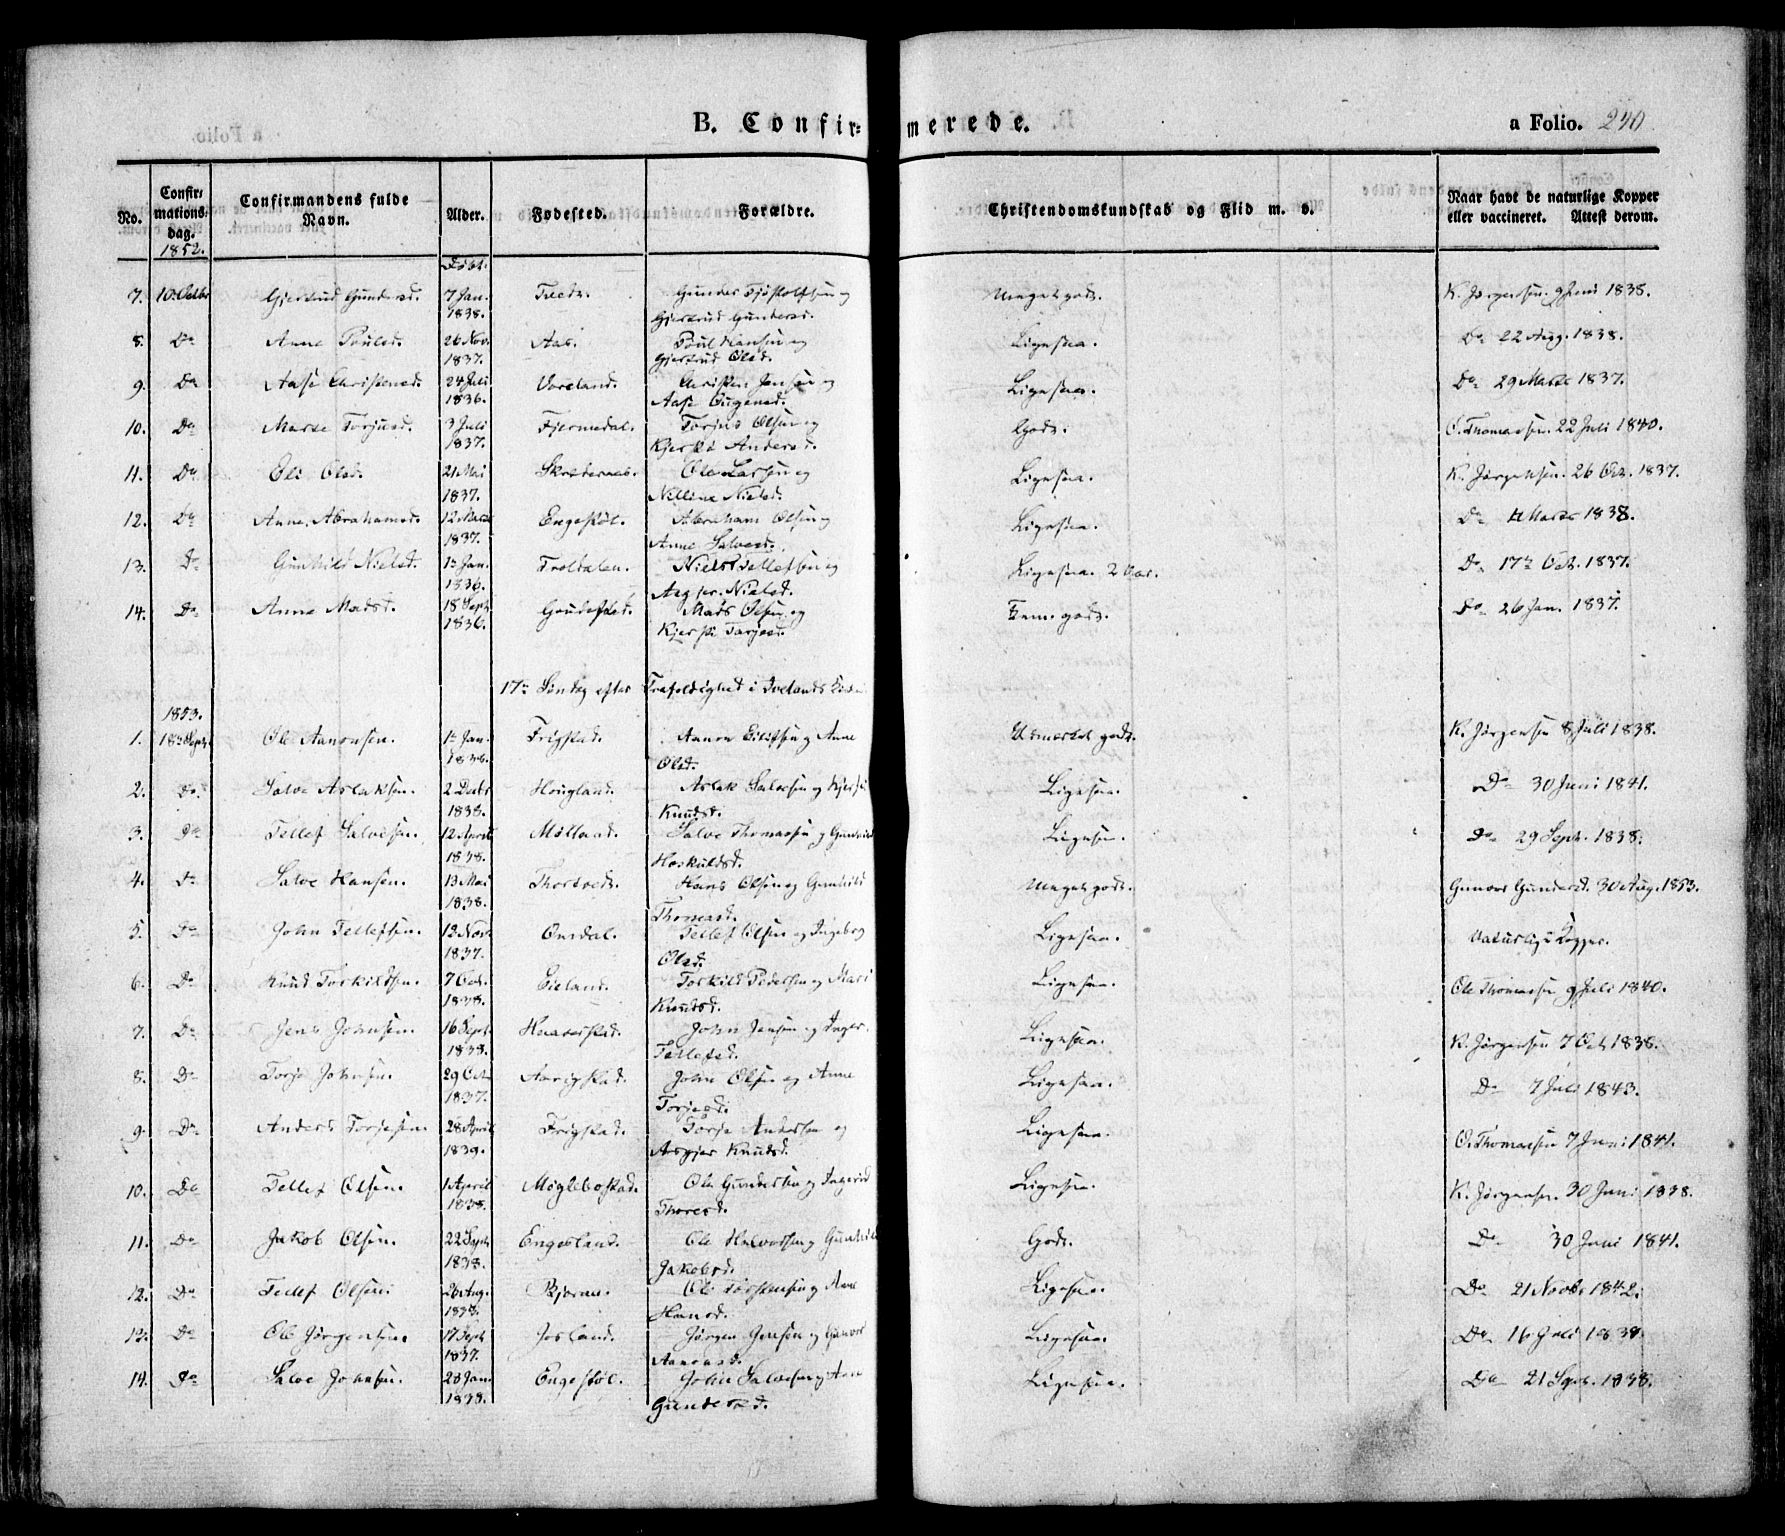 B. Confir= merede. a Folio. 240
No. Confir= mations= dag. Confirmandens fulde Navn. Alder. Fødested. Forældre. Christendomskundskab og Flid m. v. Naar havt de naturlige Kopper eller vaccineret. Attest derom.
1852. Døbt.
7. 10. Octbr Gjertrud Gundersd. 7 Jan. Tveds. Gunder Tjostolfsen og Meget godt. K. Jørgensen 9 Juni 1838.
1838. Gjertrud Gundersd.
8. Do Anne Poulsd. 26 Nov. Aas. Poul Hansen og Ligesaa. Do 22 Aug. 1838.
1837. Gjertrud Olsd.
9. Do Aase Christensd. 24 Juli Voreland. Christen Jensen og Ligesaa. Do 29 Marts 1837.
1836. Aase
10. Do Torjusd. 3 Juli Fjermedal. Torjus Olsen og Godt. O. Thomassen 22 Juli 1840.
1837. Kjersti Andersd.
11. Do Oli Olsd. 21 Mai Ole Larsen og Ligesaa. K. Jørgensen 26 Oct. 1837.
1837. Nilline Nielsd.
12. Do Anne Abrahamsd. 12 Marts Engestøl. Abraham Olsen og Ligesaa. Do Marts 1838.
1837. Anne Salvesd.
13. Do Gunhild Nielsd. 1 Jan. Troldalen. Niels Tellefsen og Ligesaa. Do 17 Oct. 1837.
1836. Nielsd.
14. Do Anne Madsd. 18 Sept. Mads Olsen og godt. Do 26 Jan. 1837.
1836. Kjersti Torjesd.
17de Søndag efter Trefoldighed i Ivelands
1853.
1. 18de Septr Ole Aanonsen. 1 Jan. Frigstad. Aanon Eilifsen og Anne Udmærket godt. K. Jørgensen 8 Juli 1838.
1838. Olsd.
2. Do. Salve Aslaksen. 2 Decbr Hougland. Aslak Salvesen og Kjersti Ligesaa. Do 30 Juni 1841.
1838. Knudsd.
3. Do Tellef Salvesen. 12 April Mølland. Salve Thomassen og Gunhild Ligesaa. Do 29 Septr. 1838.
1838. Hoskuldsd.
4. Do Salve Hansen. 13 Mai Thortveds. Hans Olsen og Gunhild Meget godt. Gunvor Gundersd. 30 Aug. 1853.
1838. Thomasd.
5. Do John Tellefsen. 12 Novr Omdal. Tellef Olsen og Ingeborg Ligesaa. Naturlige Kopper.
1837. Olsd.
6. Do Knud Torkildsen. 7 Oct. Eieland. Torkild Pedersen og Mari Ligesaa. Ole Thomassen 9 Juli 1840.
1838. Knudsd.
7. Do Jens Johnsen. 16 Sept. Hunsestad. John Jensen og Inger Ligesaa. K. Jørgensen 7 Oct 1838.
1838. Tellefsd.
8. Do Torje Johnsen. 29 Oct. John Olsen og Anne Ligesaa. Do 7 Juli 1843.
1837. Torjesd.
9. Do Anders Torjesen. 28 April Frigstad. Torje Andersen og Ligesaa. O. Thomassen 7 Juni 1841.
1839. Asgjer Knudsd.
10. Do Tellef Olsen. 1 April Møglebostad. Ole Gundersen og Ingerid Ligesaa. K. Jørgensen 30 Juni 1838.
1838. Thoresd.
11. Do Jakob Olsen. 22 Sept. Engesland. Ole Halvorsen og Gunhild Godt. Do 30 Juni 1841.
1838. Jakobsd.
12. Do Tellef Olsen. 26 Aug. Bjorne. Ole Torstensen og Anne Ligesaa. Do 21 Novbr 1842.
1838. Hansd.
13. Do Ole Jørgensen. 17 Sept Josland. Jørgen Jensen og Gunvor Ligesaa. Do 16 Juli 1838.
1837. Aanonsd.
14. Do Salve Johnsen. 28 Jan. Engestøl. John Salvesen og Anne Ligesaa. Do 21 Sept. 1838.
1838. Gundersd.